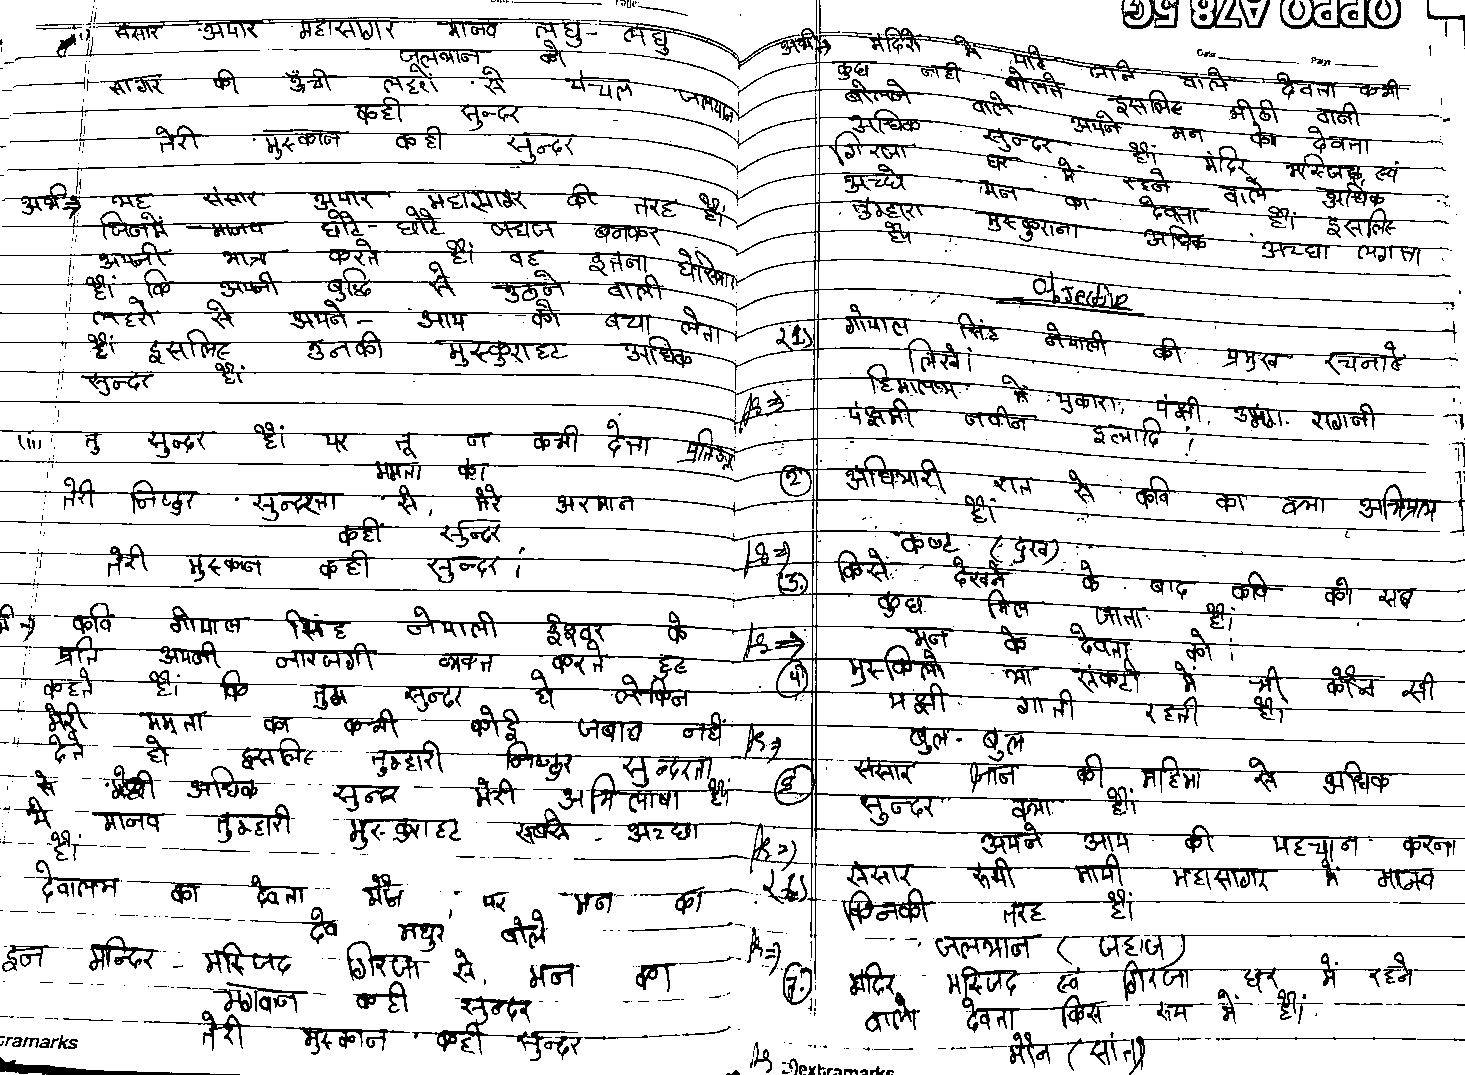 संसार अपार महासागर मानव लघु - लघु
जलयान को
सागर की ऊँची लहरों से चंचल जलयान
कही सुन्दर
तेरी मुस्कान कही सुन्दर
अर्थ⇒ यह संसार अपार महासागर की तरह है।
जिनमें मानव छोटे - छोटे जहाज बनकर
अपनी यात्रा करते हैं। वह इतना
है। कि अपनी बुद्धि से उठने वाली
लहरों से अपने - आप को बचा लेता
है। इसलिए उनकी मुस्कुराहट अधिक
सुन्दर है।
(iii) तु सुन्दर है। पर तू न कभी देता
ममता का
तेरी निष्ठुर सुन्दरता से, मेरे अरमान
कहीं सुन्दर
तेरी मुस्कान कही सुन्दर।
कवि गोपाल सिंह नेपाली ईश्वर के
प्रति अपनी नारजगी व्यक्त करते हुए
कहते है। कि तुम सुन्दर हो लेकिन
मेरी ममता का कभी कोई जबाव नहीं
देते हो इसलिए तुम्हारी निष्ठुर सुन्दरता
से अधिक सुन्दर मेरी अभिलाषा है।
मे मानव तुम्हारी मुस्कुराहट सबसे - अच्छा
है।
देवालय का देवता मौन, पर मन का
देव मधुर बोले
इन मन्दिर - मस्जिद गिरजा से, मन का
भगवान कही सुन्दर
तेरी मुस्कान कही सुन्दर
extramarks
OPPO A78 5G
Date Page
अर्थ⇒ मंदिरो में पाये जाने वाले देवता कभी
कुछ नही बोलते इसलिए मीठी वानी
बोलने वाले अपने मन का देवता
अधिक सुन्दर है। मंदिर मस्जिद एवं
गिरजा घर में रहने वाले अधिक
अच्छे मन का देवता है। इसलिए
तुम्हारा मुस्कुराना अधिक अच्छा लगता
है।
Objective
(1) गोपाल सिंह नेपाली की प्रमुख रचनाएे
लिखे।
⇒ हिमालय ने पुकारा, पंक्षी, उमंग, रागनी
पंक्षमी नवीन इत्यादि।
(2) अंधियारी रात से कवि का क्या अभिप्राय
है।
⇒ कष्ट (दुख)
(3) किसे देखने के बाद कवि को सब
कुछ मिल जाता है।
⇒ मन के देवता को।
(4) या संकटो में भी कौन सी
पक्षी गाती रहती है।
⇒ बुल - बुल
(5) संसार ज्ञान की महिमा से अधिक
सुन्दर क्या है।
⇒ अपने आप की पहचान करना
(6) संसार रूपी महासागर में मानव
किनकी तरह है।
⇒ जलयान (जहाज)
(7) मंदिर मस्जिद एवं गिरजा घर में रहने
वाले देवता किस रूप में है।
⇒ मौन (सांत)
extramarks